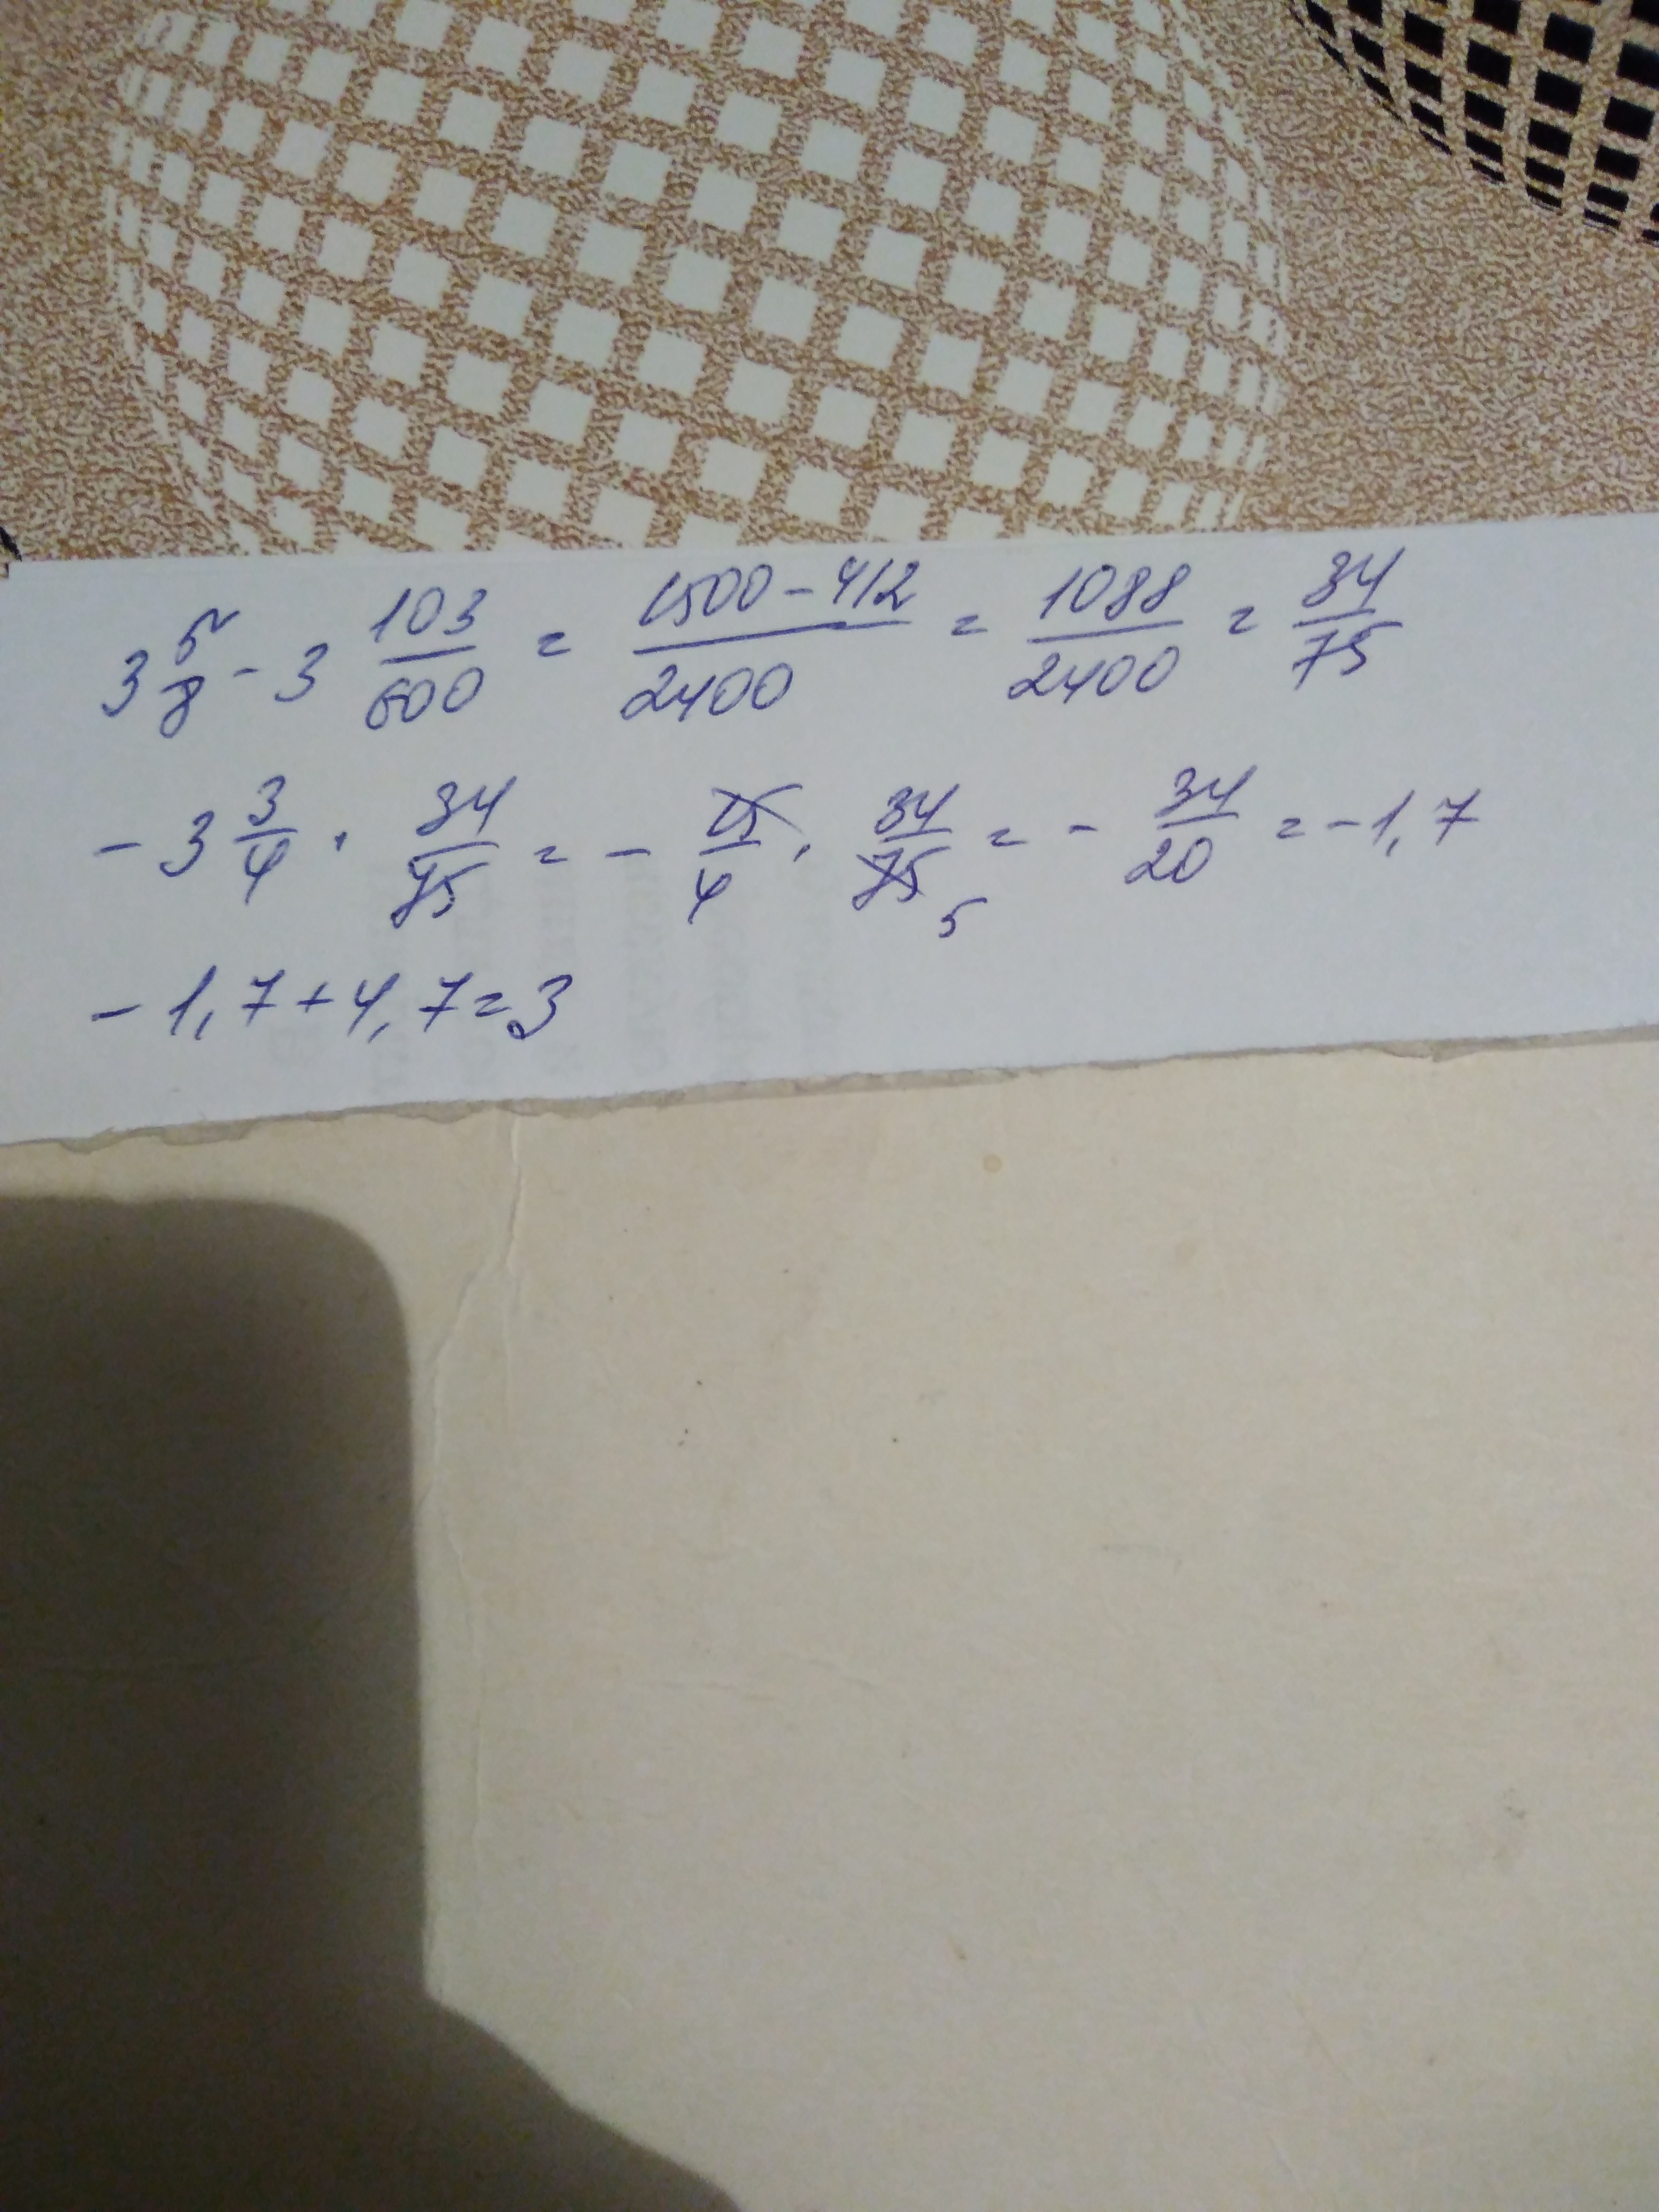 3 5/8 - 3 103/600 = (1500 - 412)/2400 = 1088/2400 = 34/75
- 3 3/4 · 34/75 = - 15/4 · 34/75 5 = - 34/20 = - 1,7
- 1,7 + 4,7 = 3